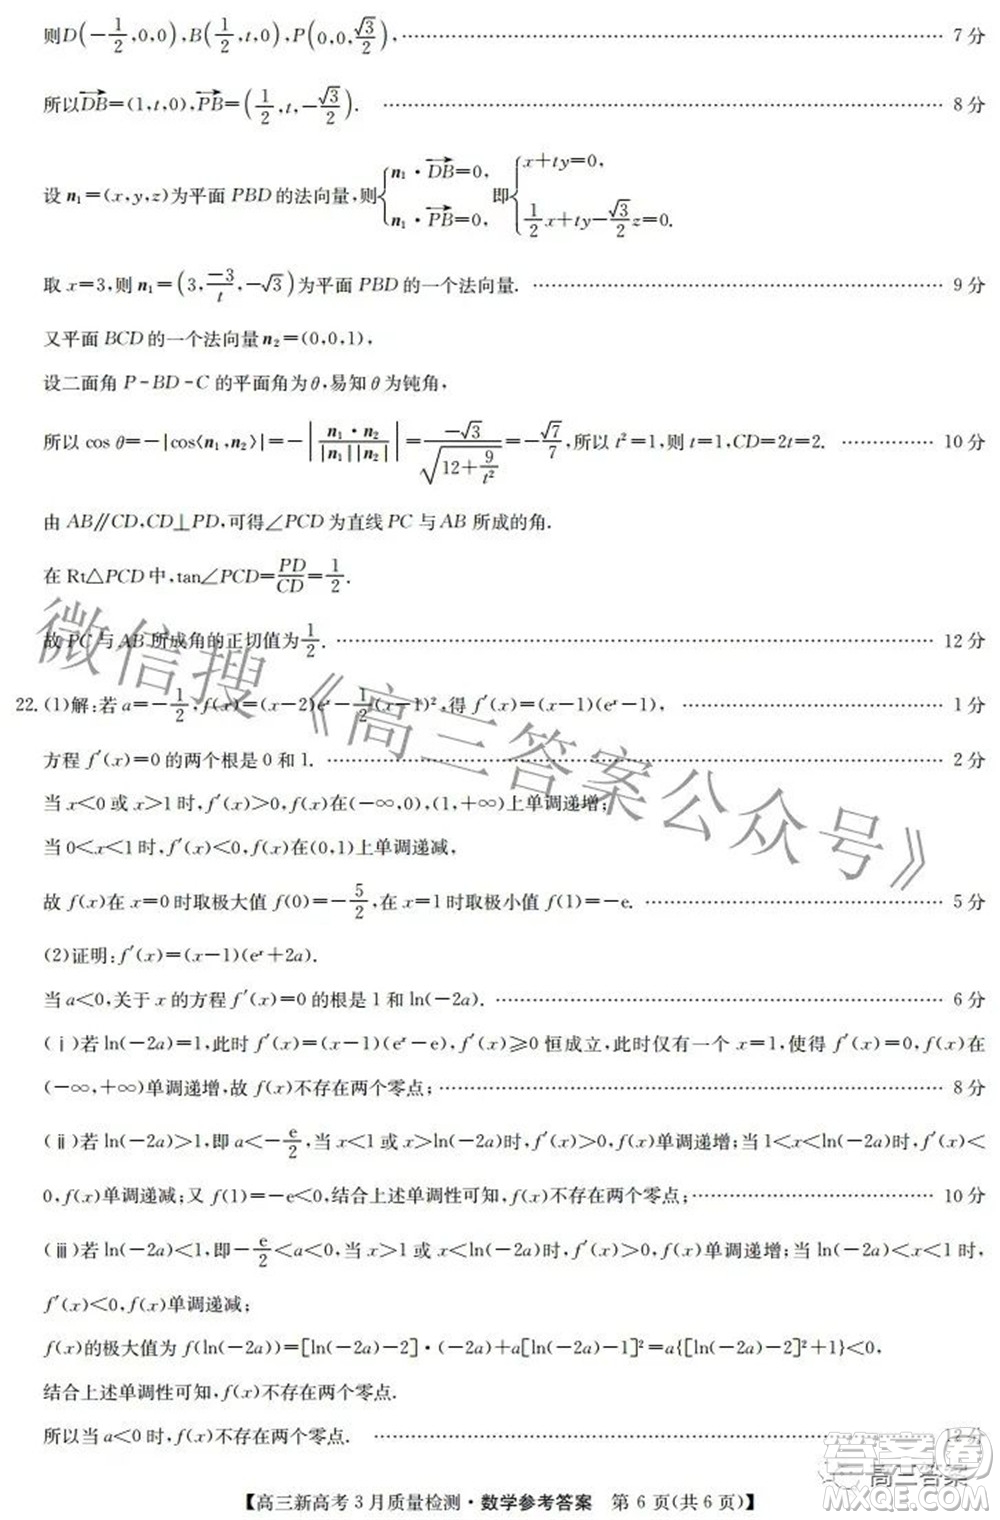 则D(−1/2,0,0),B(1/2,t,0),P(0,0,√3/2),……7分
所以DB→=(1,t,0),PB→=(1/2,t,−√3/2).……8分
设n₁=(x,y,z)为平面PBD的法向量,则{n₁·DB→=0, n₁·PB→=0, 即{x+ty=0, 1/2x+ty−√3/2z=0.
取x=3,则n₁=(3,−3/t,−√3)为平面PBD的一个法向量.……9分
又平面BCD的一个法向量n₂=(0,0,1),
设二面角P-BD-C的平面角为θ,易知θ为钝角,
所以cos θ=−|cos⟨n₁,n₂⟩|=−|n₁·n₂/|n₁||n₂||=−√3/√(12+9/t²)=−√7/7,所以t²=1,则t=1,CD=2t=2.……10分
由AB∥CD,CD⊥PD,可得∠PCD为直线PC与AB所成的角.
在Rt△PCD中,tan∠PCD=PD/CD=1/2.
故PC与AB所成角的正切值为1/2.……12分
22.(1)解:若a=−1/2,f(x)=(x−2)eˣ−1/2(x−1)²,得f′(x)=(x−1)(eˣ−1),……1分
方程f′(x)=0的两个根是0和1.……2分
当x<0或x>1时,f′(x)>0,f(x)在(−∞,0),(1,+∞)上单调递增;
当0<x<1时,f′(x)<0,f(x)在(0,1)上单调递减,
故f(x)在x=0时取极大值f(0)=−5/2,在x=1时取极小值f(1)=−e.……5分
(2)证明:f′(x)=(x−1)(eˣ+2a).
当a<0,关于x的方程f′(x)=0的根是1和ln(−2a).……6分
(ⅰ)若ln(−2a)=1,此时f′(x)=(x−1)(eˣ−e),f′(x)≥0恒成立,此时仅有一个x=1,使得f′(x)=0,f(x)在
(−∞,+∞)单调递增,故f(x)不存在两个零点;……8分
(ⅱ)若ln(−2a)>1,即a<−e/2,当x<1或x>ln(−2a)时,f′(x)>0,f(x)单调递增;当1<x<ln(−2a)时,f′(x)<
0,f(x)单调递减;又f(1)=−e<0,结合上述单调性可知,f(x)不存在两个零点;……10分
(ⅲ)若ln(−2a)<1,即−e/2<a<0,当x>1或x<ln(−2a)时,f′(x)>0,f(x)单调递增;当ln(−2a)<x<1时,
f′(x)<0,f(x)单调递减;
f(x)的极大值为f(ln(−2a))=[ln(−2a)−2]·(−2a)+a[ln(−2a)−1]²=a{[ln(−2a)−2]²+1}<0,
结合上述单调性可知,f(x)不存在两个零点.
所以当a<0时,f(x)不存在两个零点.……12分
【高三新高考3月质量检测·数学参考答案 第6页(共6页)】
微信搜《高三答案公众号》
高三答案
答案圈
MXQE.COM